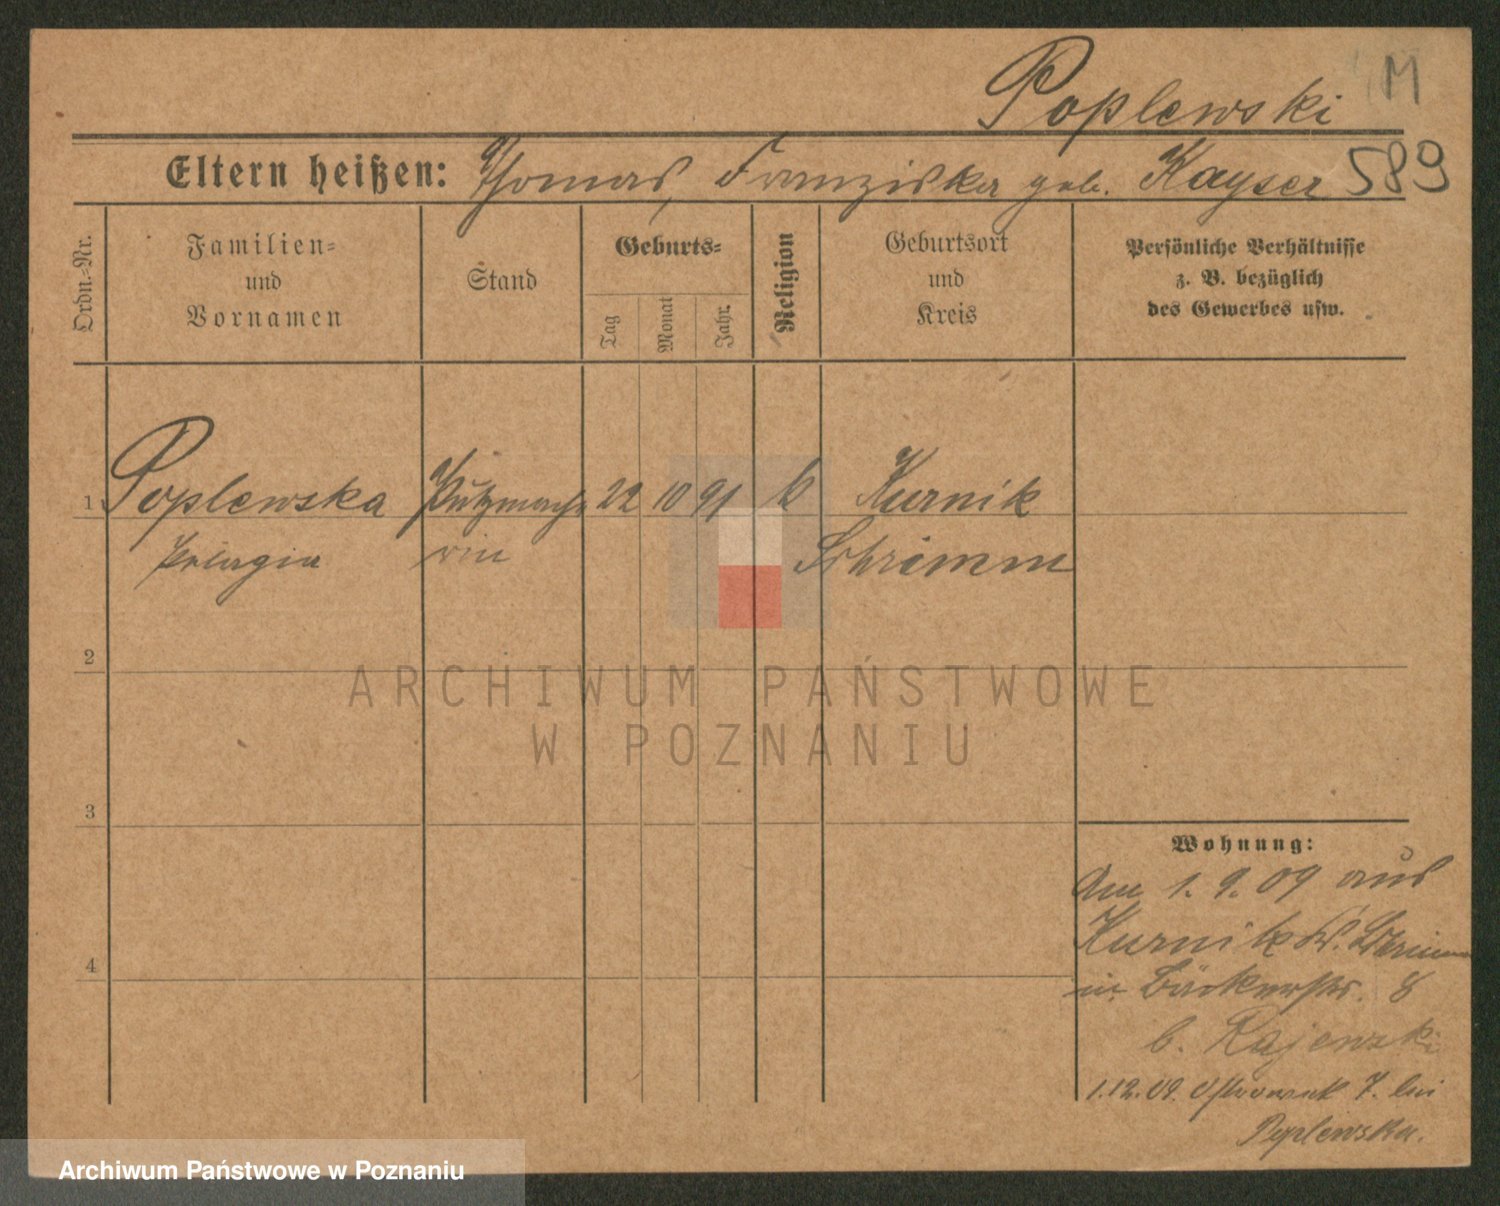 M
Poplewski
Eltern heißen: Thomas, Franziska geb. Kayser 589
Ordn.-Nr.
Familien-
und
Vornamen
Stand
Geburts-
Tag
Monat
Jahr.
Religion
Geburtsort
und
Kreis
Persönliche Verhältnisse
z. B. bezüglich
des Gewerbes usw.
1 Poplewska Putzmache 22 10 91 k Kurnik
Pelagia rin Schrimm
2
ARCHIWUM PAŃSTWOWE
W POZNANIU
3
4
Wohnung:
Am 1. 9. 09 aus
Kurnik Kr. Schrimm
in Bäckerstr. 8
b. Rajewski
1.12.09. Ostrowek 7. bei
Poplewska.
Archiwum Państwowe w Poznaniu